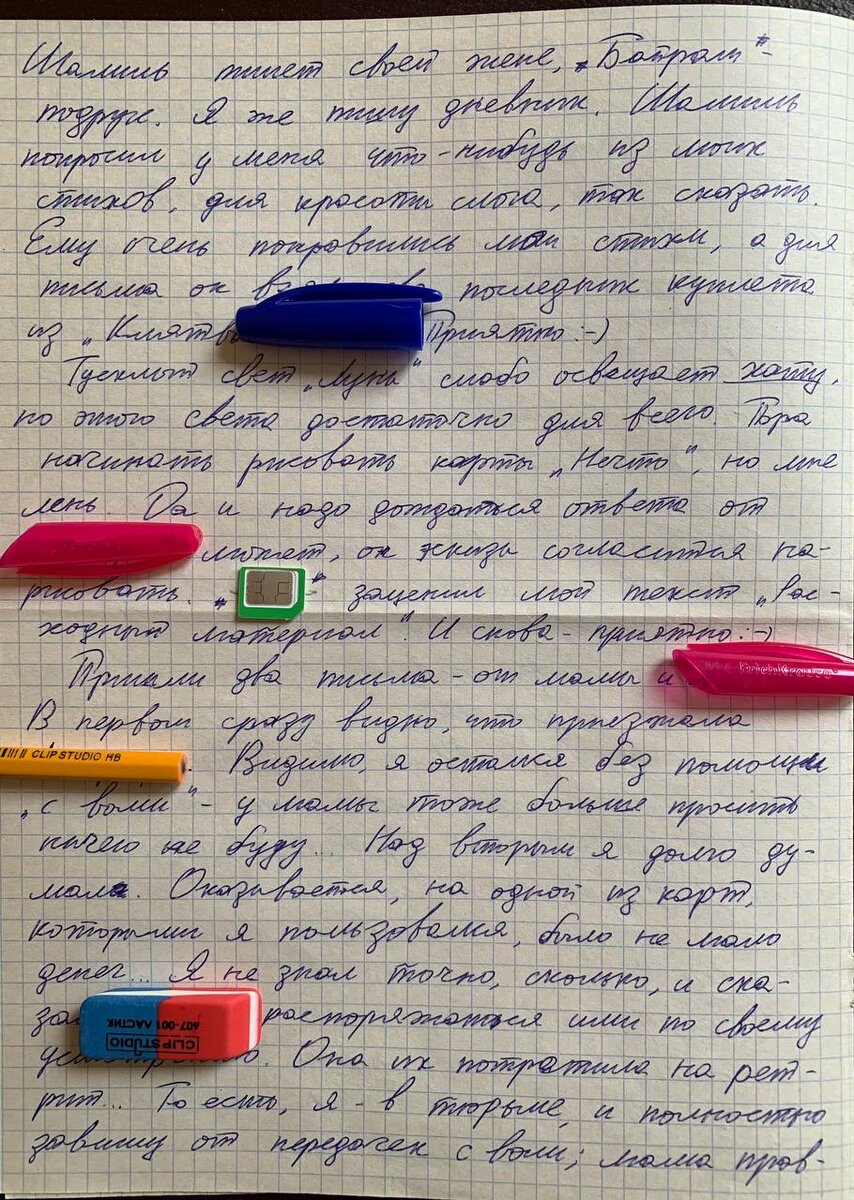 Шамиль пишет своей жене, „Батрали" -
подруге. Я же пишу дневник. Шамиль
попросил у меня что-нибудь из моих
стихов, для красоты слога, так сказать.
Ему очень понравились мои стихи, а для
письма он последних куплета
из „Клятвы Приятно :-)
Тусклый свет „Луны" слабо освещает хату,
но этого света достаточно для всего. Пора
начинать рисовать карты „Нечто", но мне
лень. Да и надо дождаться ответа от
может, он эскизы согласится на-
рисовать. " зацепил мой текст „Рас-
ходный материал". И снова - приятно :-)
Пришли два письма - от мамы и
ErichKrause
В первом сразу видно, что приезжала
CLIP STUDIO HB
Видимо, я остался без помощи
„с воли" - у мамы тоже больше просить
ничего не буду... Над вторым я долго ду-
мал. Оказывается, на одной из карт,
которыми я пользовался, было не мало
денег... Я не знал точно, сколько, и ска-
за распоряжаться ими по своему
CLIP STUDIO
607-001 ЛАСТИК
усмотрению. Она их потратила на рет-
рит... То есть, я - в тюрьме, и полностью
завишу от передачек с воли; мама прав-